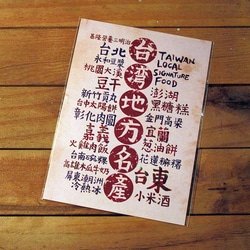 基隆營養三明治
台北
永和豆漿
桃園大溪
豆干
新竹貢丸
台中太陽餅
彰化肉圓
嘉義
火雞肉飯
台南碗粿
高雄木瓜牛奶
屏東潮洲
冷熱冰
台灣地方名產
TAIWAN
LOCAL
SIGNATURE
FOOD
澎湖
黑糖糕
金門高梁
宜蘭
蔥油餅
花蓮麻糬
台東
小米酒